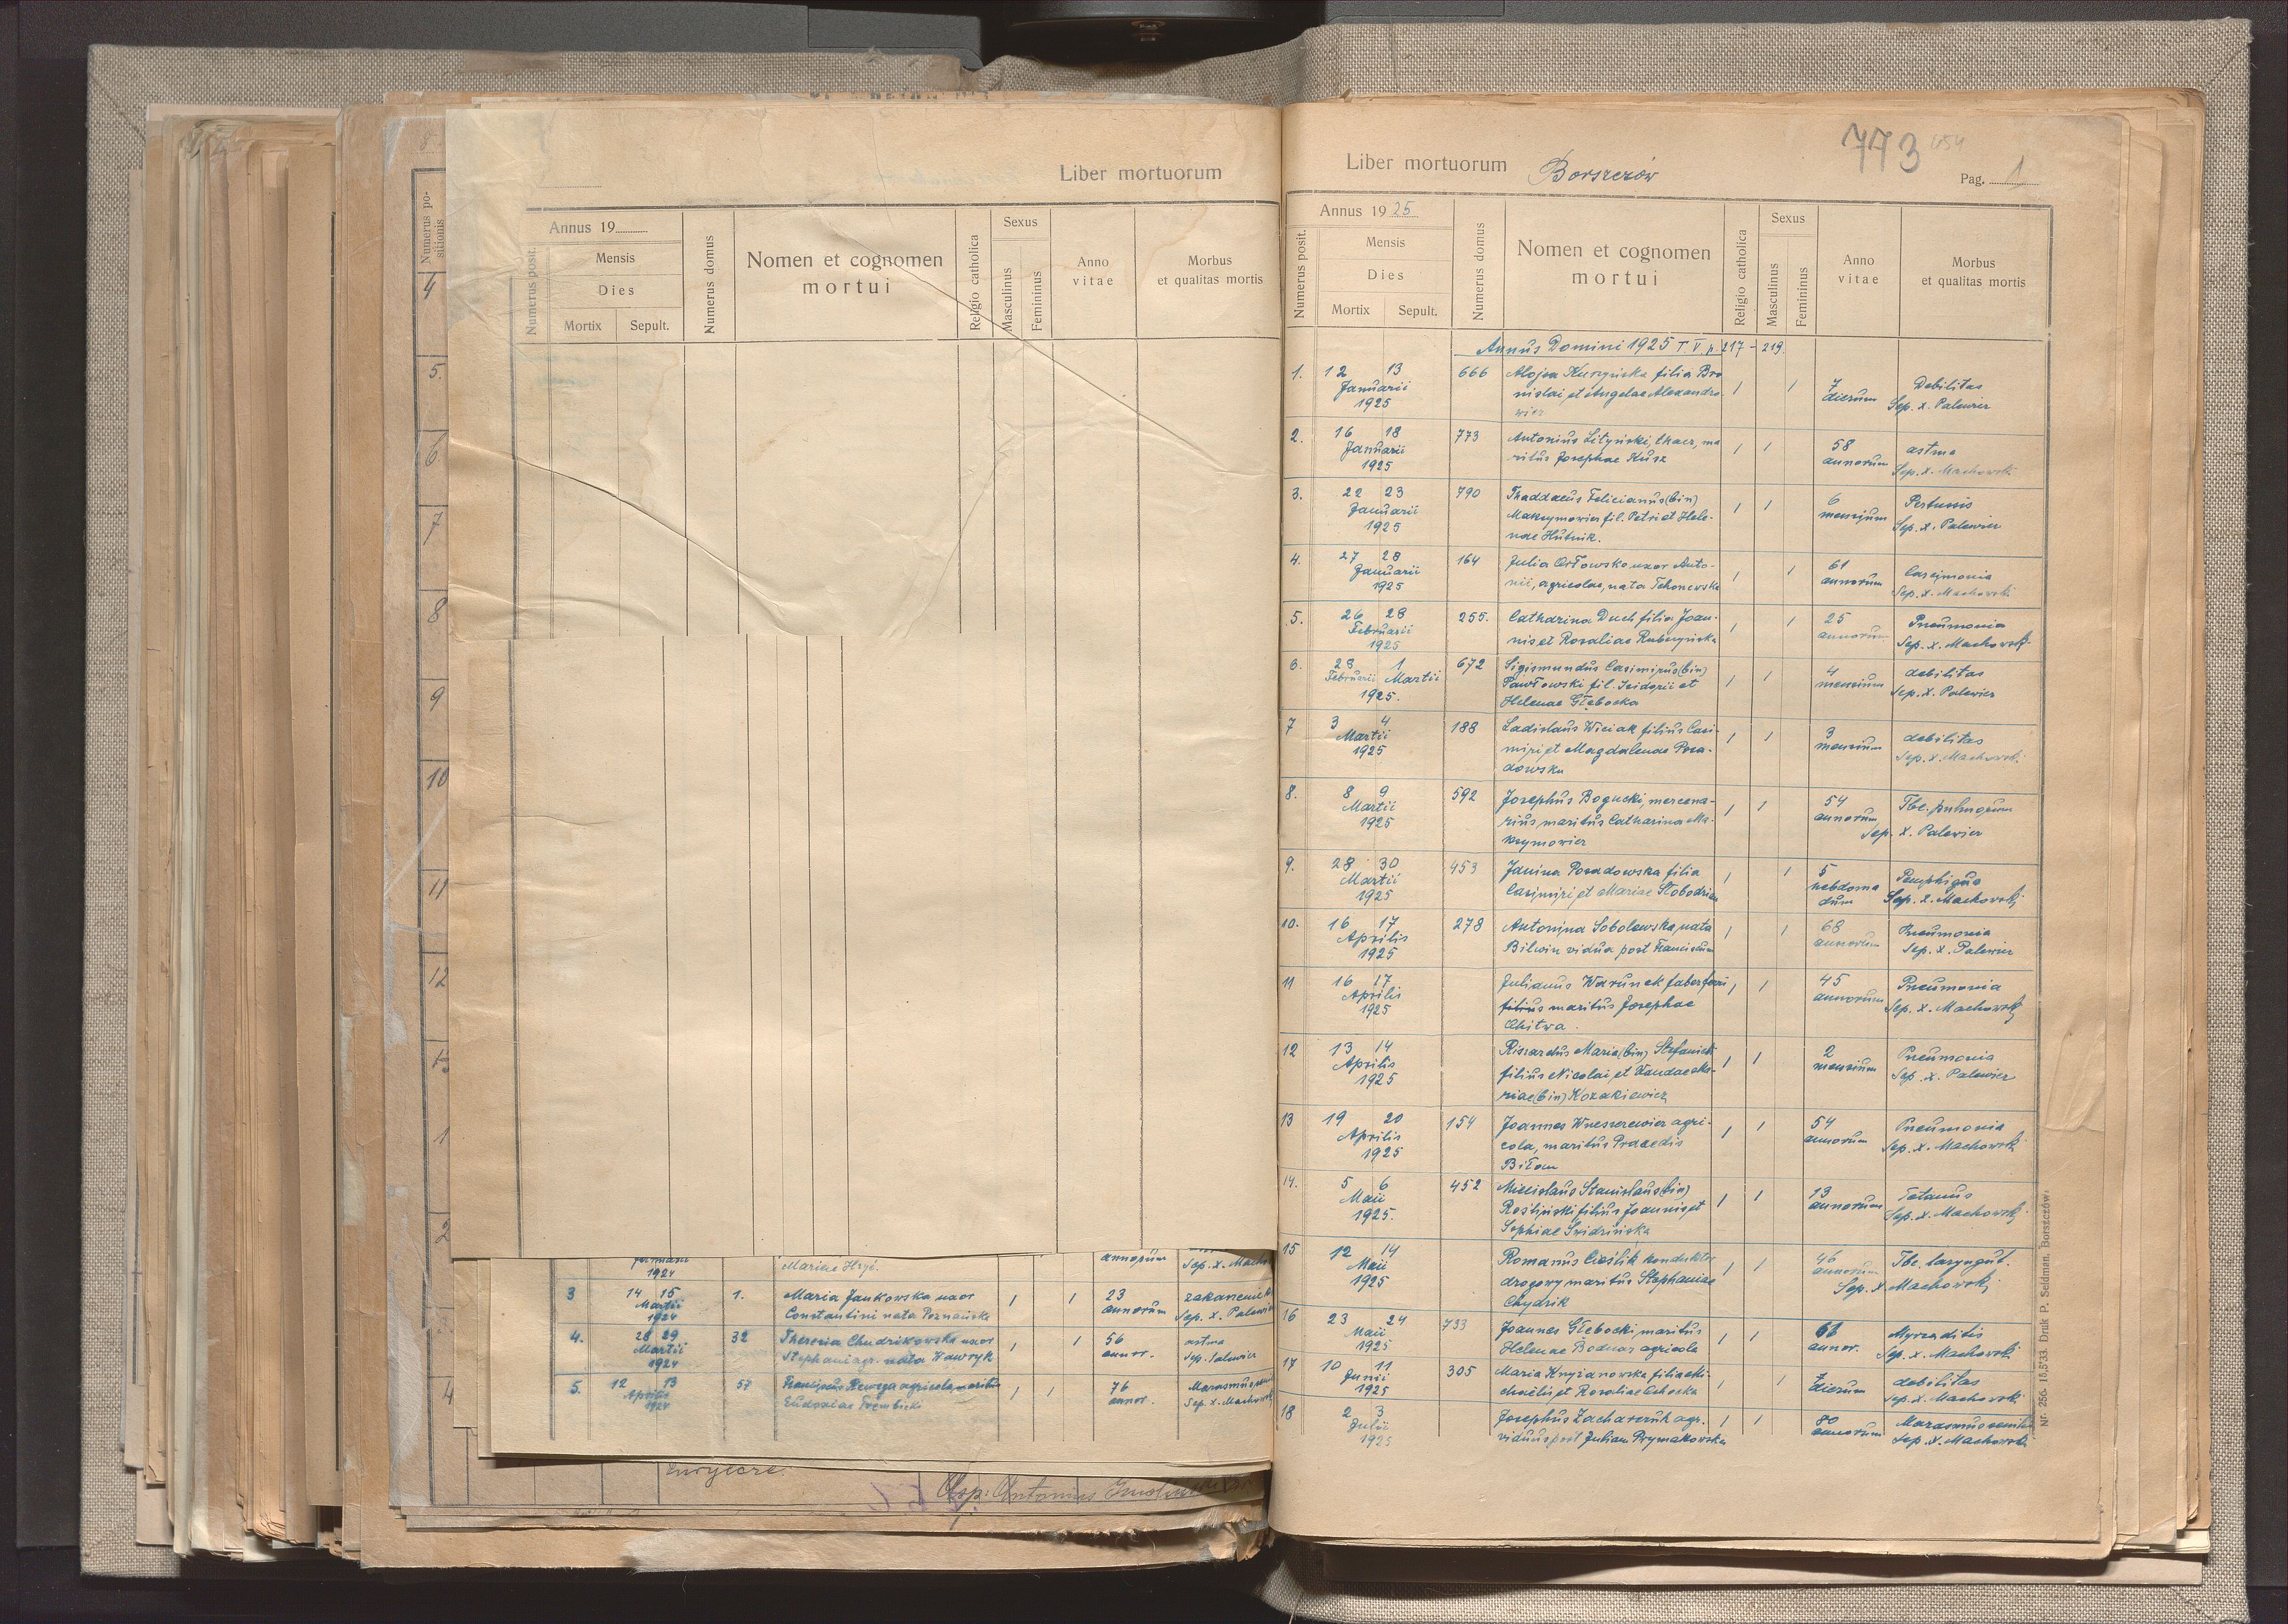 Liber mortuorum
Annus 19
Mensis
Dies
Mortix
Sepult.
Numerus posit.
Numerus domus
Nomen et cognomen
mortui
Religio catholica
Sexus
Masculinus
Femininus
Anno
vitae
Morbus
et qualitas mortis
Numerus po-
sitionis
4
5.
6.
7
8
9
10
11
12
13
1
2
4
1924
Mariae Hryć.
annorum
3 14 15 1. Maria Jankowska uxor 1 1 23
Martii Constantini nata Poznańska annorum Sep. X. Palewicz
1924
4. 28 29 32 Theresia Chudzikowska uxor 1 1 56 astma
Martii Stephani agr. nata Hawryk annor. Sep. Palewicz
1924
5. 12 13 57 agricola, maritus 1 1 76 Marasmus
Aprilis Eudoxiae Trembicki annor. Sep. X. Machowski
1924
Liber mortuorum Borszczów
773 454
Pag. 1
Annus 1925
Mensis
Dies
Mortix
Sepult.
Numerus posit.
Numerus domus
Nomen et cognomen
mortui
Religio catholica
Sexus
Masculinus
Femininus
Anno
vitae
Morbus
et qualitas mortis
Annus Domini 1925 T. V p. 217 - 219.
1. 12 13 666 Alojza Kurzyńska filia Bro 1 1 7 Debilitas
Januarii nislai et Angelae Alexandro- dierum Sep. x. Palewicz
1925 wicz
2. 16 18 773 Antonius Lityński, thacz, ma 1 1 58 astma
Januarii ritus Josephae Kusz annorum Sep. x. Machowski
1925
3. 22 23 790 Thaddaeus Felicianus (bin) 1 1 6 Pertussis
Januarii Maksymowicz fil. Petri et Hele- mensium Sep. x. Palewicz
1925 nae Hutnik.
4. 27 28 164 Julia Orłowska uxor Anto- 1 1 61
Januarii nii, agricolae, nata Tchonewska annorum Sep. x. Machowski
1925
5. 26 28 255. Catharina Duch filia Joan- 1 1 25 Pneumonia
Februarii nis et Rosaliae Rubczyńska annorum Sep. x. Machowski
1925
6. 28 1 672 Sigismundus Casimirus (bin) 1 1 4 debilitas
Februarii Martii Pawłowski fil. Isidorii et mensium Sep. x. Palewicz
1925. Helenae Głębocka
7 3 4 188 Ladislaus Wiciak filius Casi- 1 1 3 debilitas
Martii miri et Magdalenae Posa- mensium Sep. x. Machowski
1925 dowska
8. 8 9 592 Josephus Bogucki, mercena- 1 1 54 Tbc. pulmorum
Martii rius, maritus Catharina Ma- annorum Sep. X. Palewicz
1925 ksymowicz
9. 28 30 453 Janina Posadowska filia 1 1 5 Pemphigus
Martii Casimiri et Mariae Słobodzian hebdoma Sep. x. Machowski
1925 dum
10. 16 17 278 Antonina Sobolewska, nata 1 1 68 Pneumonia
Aprilis Bilwin vidua post Franciscum annorum Sep. X. Palewicz
1925
11 16 17 Julianus Warunek faber 1 1 45 Pneumonia
Aprilis filius maritus Josephae annorum Sep. x. Machowski
1925 Chitwa.
12 13 14 Riszardus Maria (bin) Stefanicki 1 1 2 Pneumonia
Aprilis filius Nicolai et Wandae Ma- mensium Sep. x. Palewicz
1925 riae (bin) Kozakiewicz
13 19 20 154 Joannes agri- 1 1 54 Pneumonia
Aprilis cola, maritus Praxedis annorum Sep. x. Machowski
1925
14. 5 6 452 Miecislaus Stanislaus (bin) 1 1 13 Tetanus
Maii Rośliński filius Joannis et annorum Sep. x. Machowski
1925. Sophiae Świdzińska
15 12 14 Romanus Cieślik konduktor 1 1 46 Tbc. laryngut.
Maii drogowy maritus Stephaniae annorum Sep. X Machowski
1925 Chydzik
16 23 24 733 Joannes Głębocki, maritus 1 1 61
Maii Helenae Bodnar agricola annor. Sep. x. Machowski
1925
17 10 11 305 Maria Kryżanowska filia Mi- 1 1 7 debilitas
Junii chaelis et Rosaliae Cichocka dierum Sep. x. Machowski
1925
18 2 3 Josephus Zacharczuk agr. 1 1 80 Marasmus senilis
Julii viduus post Julian Prymakowska annorum Sep. x. Machowski
1925
Nr. 256. 15.5'33. Druk P. Seldman, Borszczów.